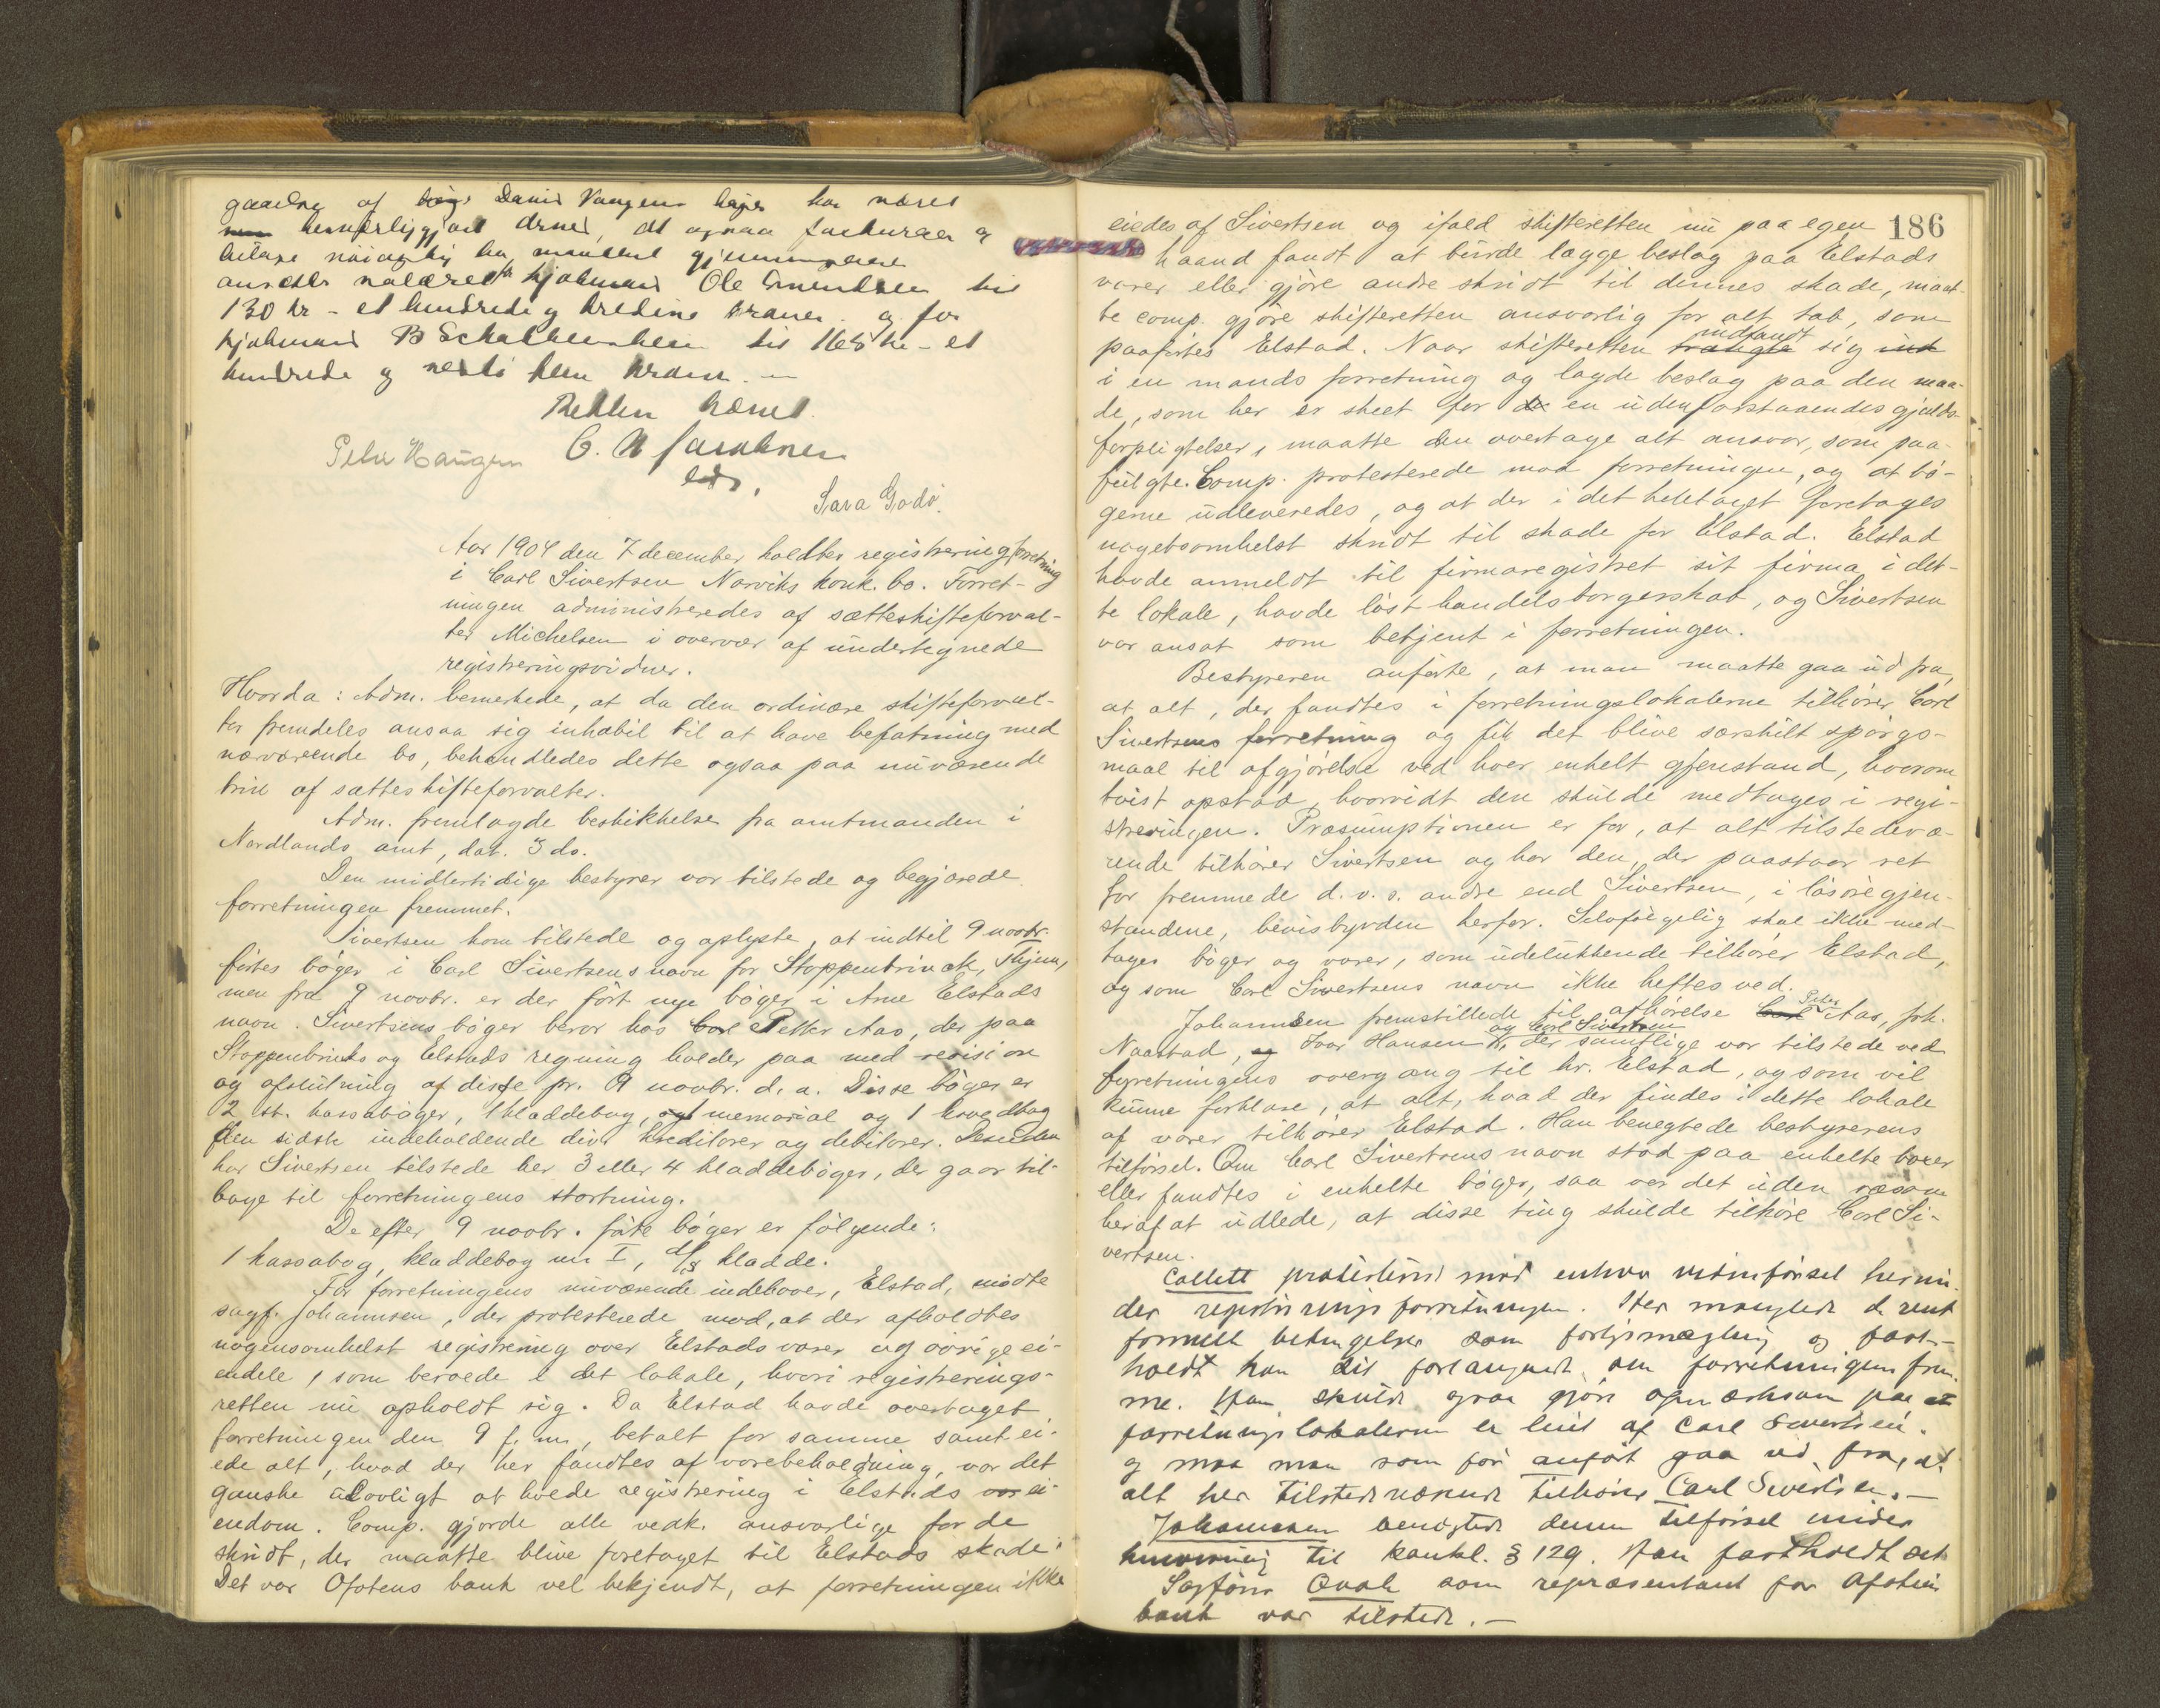 gaaelse af David Vangens bøger har været
at ogsaa fakturaer og
bilage nøiagtig har gjennemgaaes
ansættes salæret kjøbmand Ole Amundsen til
130 kr - et hundrede og tredive kroner og for
kjøbmand B Schalkenhein til 165 kr - et
hundrede og sexti fem kroner. —
Retten hævet.
Peder Haugen
Sara Godø.
Aar 1904 den 7 december holdtes registreringsforretning
i Carl Sivertsen Narviks konk. bo. Forret-
ningen administreredes af sætteskifteforval-
ter Michelsen i overvær af undertegnede
registreringsvidner.
Hvorda: Adm. bemerkede, at da den ordinære skifteforval-
ter fremdeles ansaa sig inhabil til at have befatning med
nærværende bo, behandledes dette ogsaa paa nuværende
trin af sætteskifteforvalter.
Adm. fremlagde beskikkelse fra amtmanden i
Nordlands amt, dat. 3 ds.
Den midlertidige bestyrer var tilstede og begjærede
forretningen fremmet.
Sivertsen kom tilstede og oplyste, at indtil 9 novbr.
førtes bøger i Carl Sivertsens navn for Stoppenbrinck, Thjem,
men fra 9 novbr. er der ført nye bøger i Arne Elstads
navn. Sivertsens bøger beror hos Carl Petter Aas, der paa
Stoppenbrinks og Elstads regning holder paa med revision
og afslutning af disse pr. 9 novbr. d. a. Disse bøger er
2 st. kassabøger, 1 kladdebog, og 1 memorial og 1 hovedbog
den sidste indeholdende div. kreditorer og debitorer. Desuden
har Sivertsen tilstede her 3 eller 4 kladdebøger, der gaar til-
bage til forretningens stortning.
De efter 9 novbr. førte bøger er følgende:
1 kassabog, kladdebog nr I, kladde.
For forretningens nuværende indehaver, Elstad, mødte
sagf. Johannsen, der protesterede mod, at der afholdtes
nogensomhelst registrering over Elstads varer og øvrige ei-
endele, som beroede i det lokale, hvori registrerings-
retten nu opholdt sig. Da Elstad havde overtaget
forretningen den 9 f. m., betalt for samme samt ei-
ede alt, hvad der her fandtes af varebeholdning, var det
ganske ulovligt at holde registrering i Elstads ei-
endom. Comp. gjorde alle vedk. ansvarlige for de
skridt, der maatte blive foretaget til Elstads skade.
Det var Ofotens bank vel bekjendt, at forretningen ikke
186
eiedes af Sivertsen og ifald skifteretten nu paa egen
haand fandt at burde lægge beslag paa Elstads
varer eller gjøre andre skridt til dennes skade, maat-
te comp. gjøre skifteretten ansvarlig for alt tab, som
paaførtes Elstad. Naar skifteretten trængte indfandt sig ind
i en mands forretning og lagde beslag paa den maa-
de, som her er skeet for en udenforstaaendes gjælds-
forpligtelser, maatte den overtage alt ansvar, som paa-
fulgte. Comp. protesterede mod forretningen, og at bø-
gerne udleveredes, og at der i det heletaget foretages
nogetsomhelst skridt til skade for Elstad. Elstad
havde anmeldt til firmaregistret sit firma i det-
te lokale, havde løst handelsborgerskab, og Sivertsen
var ansat som betjent i forretningen.
Bestyreren anførte, at man maatte gaa ud fra,
at alt, der fandtes i forretningslokalerne tilhører Carl
Sivertsens forretning og fik det blive særskilt spørgs-
maal til afgjørelse ved hver enkelt gjenstand, hvorom
tvist opstod, hvorvidt den skulde medtages i regi-
streringen. Præsumptionen er for, at alt tilstedevæ-
rende tilhører Sivertsen og har den, der paastaar ret
for fremmede d. v. s. andre end Sivertsen, i løsøregjen-
standene, bevisbyrden herfor. Selvfølgelig skal ikke med-
tages bøger og varer, som udelukkende tilhører Elstad,
og som Carl Sivertsens navn ikke heftes ved.
Johannsen fremstillede til afhørelse Carl Peter Aas, frk.
Naastad, og Ivar Hansen og Carl Sivertsen, der samtlige var tilstede ved
forretningens overgang til hr. Elstad, og som vil
kunne forklare, at alt, hvad der findes i dette lokale
af varer tilhører Elstad. Han benegtede bestyrerens
tilførsel. Om Carl Sivertsens navn stod paa enkelte varer
eller fandtes i enkelte bøger, saa var det uden ræson
heraf at udlede, at disse ting skulde tilhøre Carl Si-
vertsen.
Collett protesterer mod enhver vidneførsel herun-
der registreringsforretningen. Her manglede de rent
formelle betingelser som forligsmægling og fast-
holdt han sit forlangende om forretningens frem-
me. Han skulde ogsaa gjøre opmærksom paa at
forretningslokalerne er leiet af Carl Sivertsen.
og maa man som før anført gaa ud fra, at
alt her tilstedeværende tilhører Carl Sivertsen. —
Johannsen benegtede denne tilførsel under
henvisning til konkl. § 129. Han fastholdt sit
Sagfører Qvale som repræsentant for Ofotens
bank var tilstede. —